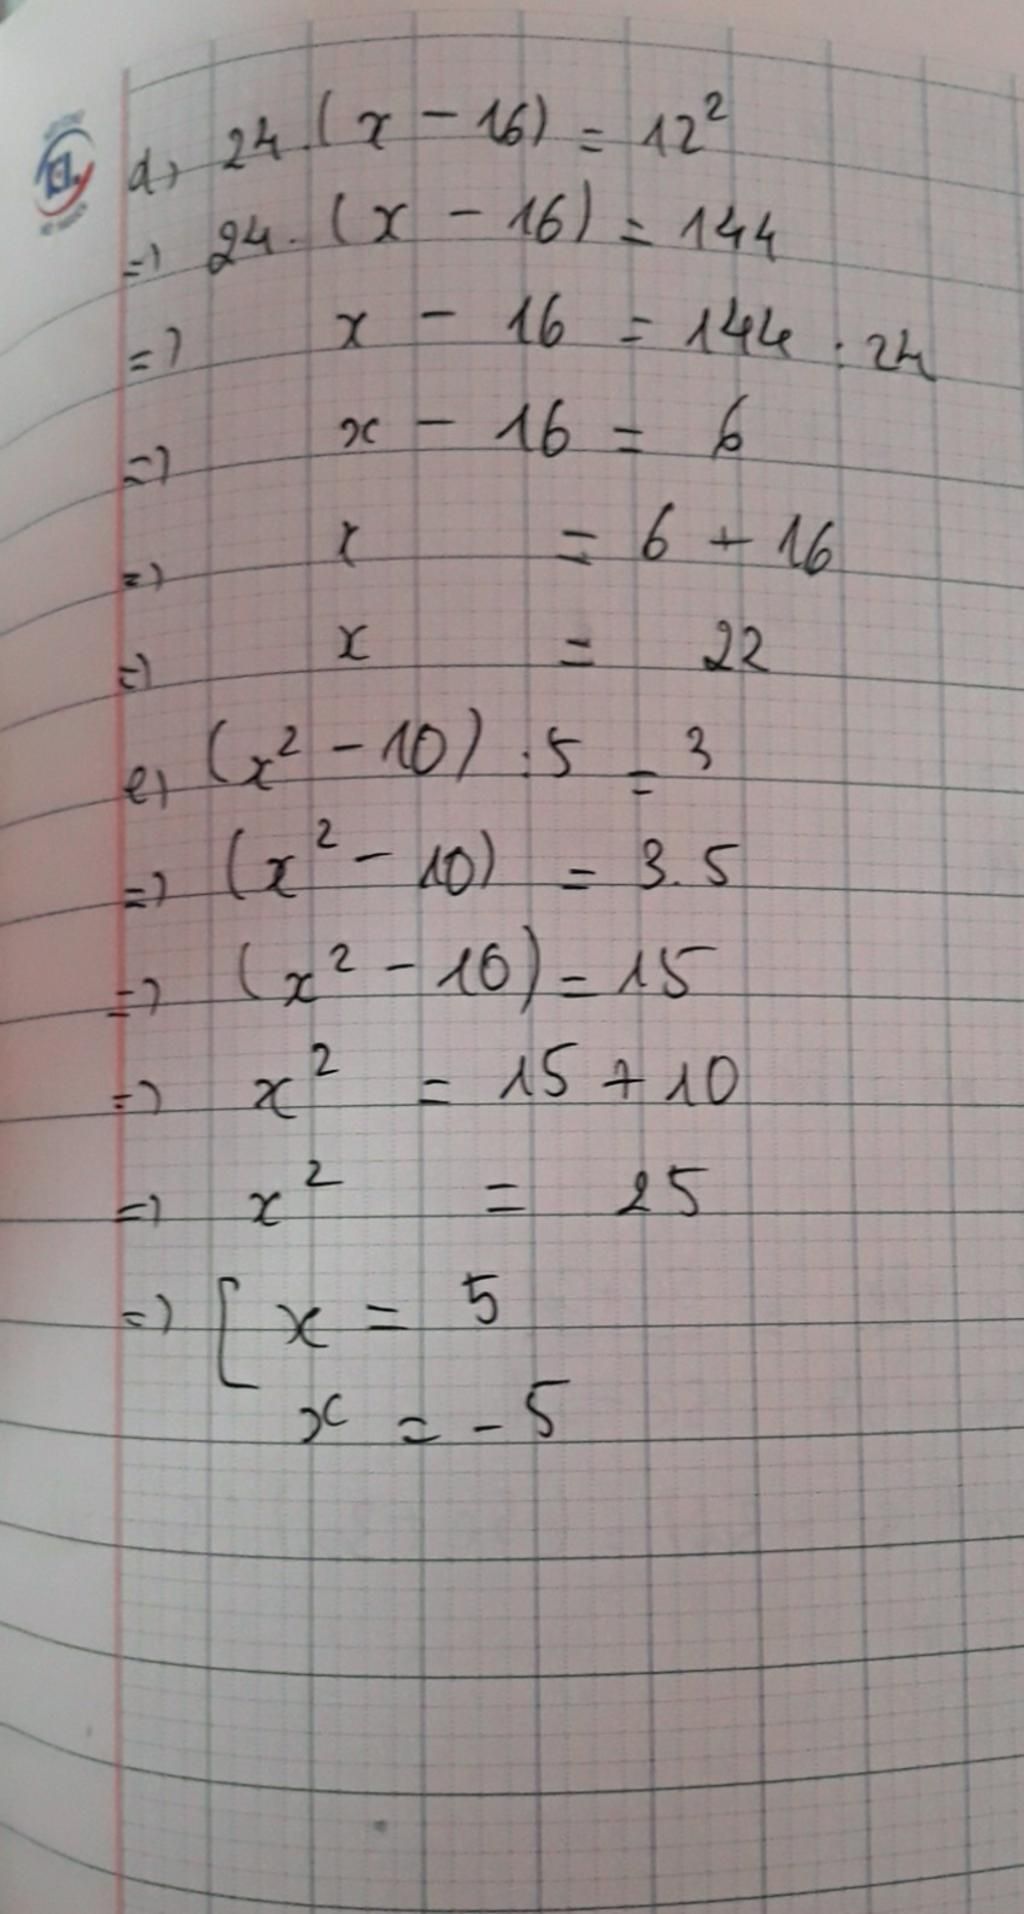 d, 24.(x - 16) = 12²
=) 24.(x - 16) = 144
=) x - 16 = 144 : 24
=) x - 16 = 6
=) x = 6 + 16
=) x = 22
e, (x² - 10) : 5 = 3
=) (x² - 10) = 3.5
=) (x² - 10) = 15
=) x² = 15 + 10
=) x² = 25
=) [ x = 5
x = -5